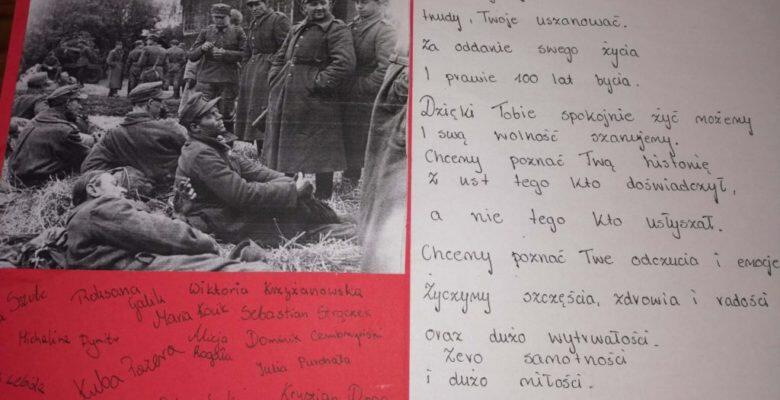 trudy, Twoje uszanować.
Za oddanie swego życia
I prawie 100 lat bycia.
Dzięki Tobie spokojnie żyć możemy
I swą wolność szanujemy.
Chcemy poznać Twą historię
Z ust tego kto doświadczył,
a nie tego kto usłyszał.
Chcemy poznać Twe odczucia i emocje
Życzymy szczęścia, zdrowia i radości
oraz dużo wytrwałości.
Zero samotności
i dużo miłości.
Szulc Roksana Galik Wiktoria Krzyżanowska
Maria Kouik Sebastian Strączek
Michalina Alicja Rogala Dominik
Kuba Pazera Julia Purchała